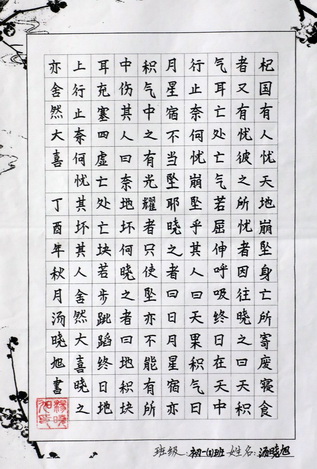 杞国有人忧天地崩坠身亡所寄废寝食
者又有忧彼之所忧者因往晓之曰天积
气耳亡处亡气若屈伸呼吸终日在天中
行止奈何忧崩坠乎其人曰天果积气日
月星宿不当坠耶晓之者曰日月星宿亦
积气中之有光耀者只使坠亦不能有所
中伤其人曰奈地坏何晓之者曰地积块
耳充塞四虚亡处亡块若步跳蹈终日地
上行止奈何忧其坏其人舍然大喜晓之
亦舍然大喜 丁酉年秋月汤晓旭书
班级:初一(1)班 姓名:汤晓旭